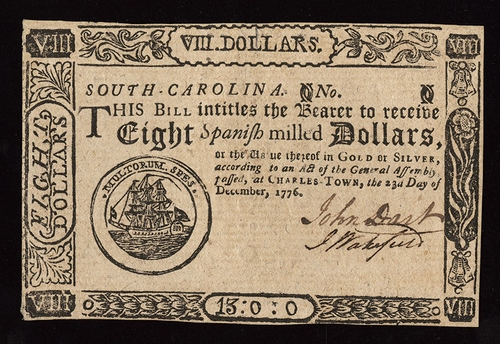 VIII
VIII. DOLLARS.
VIII
SOUTH-CAROLINA. No.
THIS BILL intitles the Bearer to receive
Eight Spanish milled Dollars,
or the Value thereof in GOLD or SILVER,
according to an Act of the General Assembly
passed, at CHARLES-TOWN, the 23d Day of
December, 1776.
EIGHT
DOLLARS
MULTORUM SPES
John Dart
J Wakefield
VIII
13:0:0
VIII